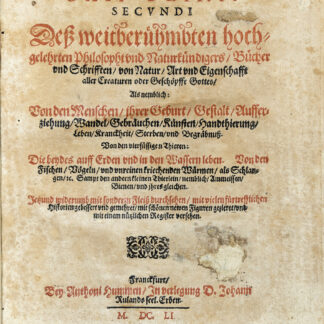 SECVNDI
Deß weitberühmbten hoch-
gelehrten Philosophi vnd Naturkündigers / Bücher
vnd Schrifften / von Natur / Art vnd Eigenschafft
aller Creaturen oder Geschöpff Gottes /
Als nemblich:
Von den Menschen / jhrer Geburt / Gestalt / Auffer-
ziehung / Wandel / Gebräuchen / Künsten / Handthierung /
Leben / Kranckheit / Sterben / vnd Begräbnuß.
Von den vierfüssigen Thieren:
Die beydes auff Erden vnd in den Wassern leben. Von den
Fischen / Vögeln / vnd vnreinen kriechenden Würmen / als Schlan-
gen / ꝛc. Sampt den andern kleinen Thierlein / nemblich / Ammeissen /
Bienen / vnd jhres gleichen.
Jetzund widerumb mit sonderm Fleiß durchsehen / mit vielen fürtrefflichen
Historien gebessert vnd gemehret / mit schönen newen Figuren gezieret / vnd
mit einem nützlichen Register versehen.
Franckfurt /
Bey Anthoni Hummen / In verlegung D. Johann
Rulands seel. Erben.
M. DC. LI